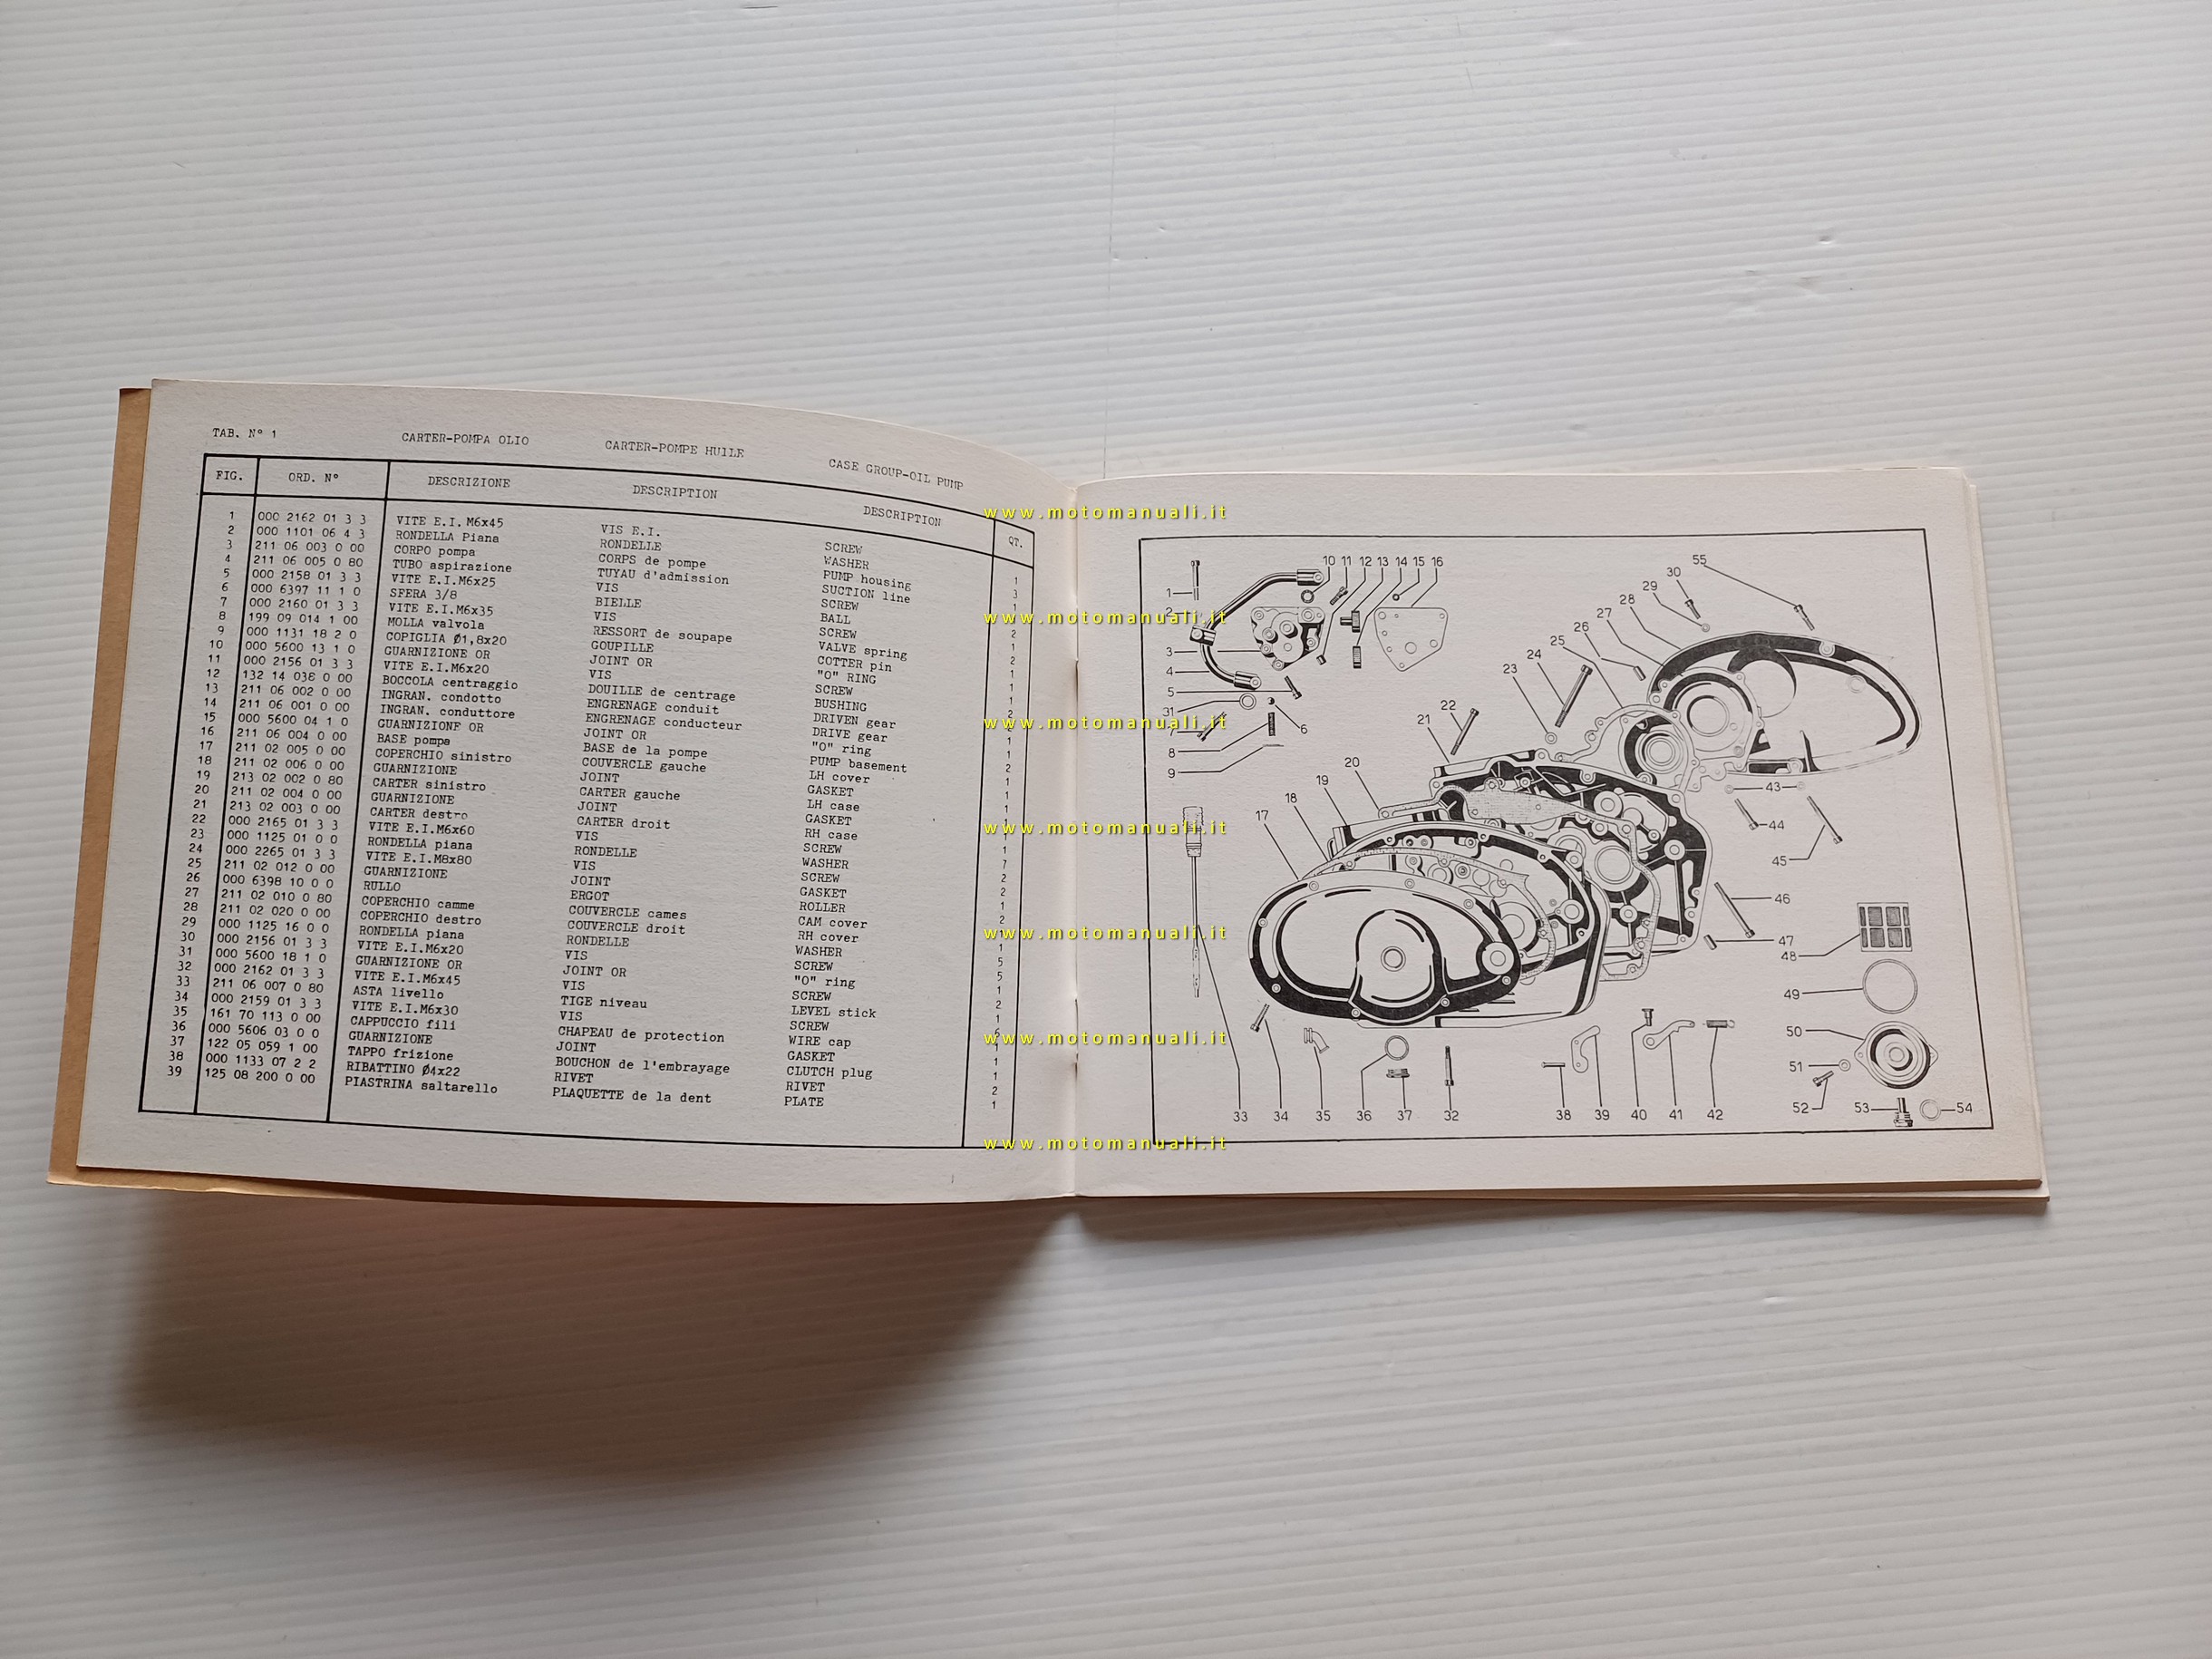 TAB. N° 1 CARTER-POMPA OLIO CARTER-POMPE HUILE CASE GROUP-OIL PUMP
FIG. ORD. N° DESCRIZIONE DESCRIPTION DESCRIPTION QT.
1 000 2162 01 3 3 VITE E.I. M6x45 VIS E.I. SCREW 1
2 000 1101 06 4 3 RONDELLA Piana RONDELLE WASHER 3
3 211 06 003 0 00 CORPO pompa CORPS de pompe PUMP housing 1
4 211 06 005 0 80 TUBO aspirazione TUYAU d'admission SUCTION line
5 000 2158 01 3 3 VITE E.I.M6x25 VIS SCREW 2
6 000 6397 11 1 0 SFERA 3/8 BIELLE BALL 1
7 000 2160 01 3 3 VITE E.I.M6x35 VIS SCREW 2
8 199 09 014 1 00 MOLLA valvola RESSORT de soupape VALVE spring 1
9 000 1131 18 2 0 COPIGLIA Ø1,8x20 GOUPILLE COTTER pin 1
10 000 5600 13 1 0 GUARNIZIONE OR JOINT OR "O" RING
11 000 2156 01 3 3 VITE E.I.M6x20 VIS SCREW
12 132 14 038 0 00 BOCCOLA centraggio DOUILLE de centrage BUSHING
13 211 06 002 0 00 INGRAN. condotto ENGRENAGE conduit DRIVEN gear
14 211 06 001 0 00 INGRAN. conduttore ENGRENAGE conducteur DRIVE gear
15 000 5600 04 1 0 GUARNIZIONE OR JOINT OR "O" ring
16 211 06 004 0 00 BASE pompa BASE de la pompe PUMP basement
17 211 02 005 0 00 COPERCHIO sinistro COUVERCLE gauche LH cover
18 211 02 006 0 00 GUARNIZIONE JOINT GASKET
19 213 02 002 0 80 CARTER sinistro CARTER gauche LH case
20 211 02 004 0 00 GUARNIZIONE JOINT GASKET
21 213 02 003 0 00 CARTER destro CARTER droit RH case
22 000 2165 01 3 3 VITE E.I.M6x60 VIS SCREW
23 000 1125 01 0 0 RONDELLA piana RONDELLE WASHER
24 000 2265 01 3 3 VITE E.I.M8x80 VIS SCREW
25 211 02 012 0 00 GUARNIZIONE JOINT GASKET
26 000 6398 10 0 0 RULLO ERGOT ROLLER
27 211 02 010 0 80 COPERCHIO camme COUVERCLE cames CAM cover
28 211 02 020 0 00 COPERCHIO destro COUVERCLE droit RH cover
29 000 1125 16 0 0 RONDELLA piana RONDELLE WASHER 5
30 000 2156 01 3 3 VITE E.I.M6x20 VIS SCREW 5
31 000 5600 18 1 0 GUARNIZIONE OR JOINT OR "O" ring 1
32 000 2162 01 3 3 VITE E.I.M6x45 VIS SCREW 2
33 211 06 007 0 80 ASTA livello TIGE niveau LEVEL stick 1
34 000 2159 01 3 3 VITE E.I.M6x30 VIS SCREW 6
35 161 70 113 0 00 CAPPUCCIO fili CHAPEAU de protection WIRE cap
36 000 5606 03 0 0 GUARNIZIONE JOINT GASKET 1
37 122 05 059 1 00 TAPPO frizione BOUCHON de l'embrayage CLUTCH plug 1
38 000 1133 07 2 2 RIBATTINO Ø4x22 RIVET RIVET 2
39 125 08 200 0 00 PIASTRINA saltarello PLAQUETTE de la dent PLATE 1
www.motomanuali.it
www.motomanuali.it
www.motomanuali.it
www.motomanuali.it
www.motomanuali.it
www.motomanuali.it
www.motomanuali.it
10 11 12 13 14 15 16
1
2
3
4
5
31
7
8
9
6
55
30
29
28
27
26
25
24
23
22
21
20
19
18
17
43
44
45
46
47
48
49
50
51
52 53 54
33 34 35 36 37 32 38 39 40 41 42